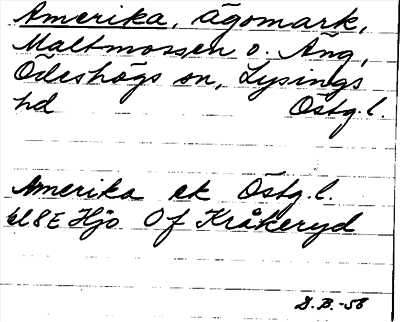 Amerika, ägomark,
Maltmossen o. Äng,
Ödeshögs sn, Lysings
hd Östg.l.
Amerika ek Östg.l.
bl 8E Hjo Of Kråkeryd
D.B.-58